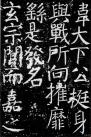 韋大下公挺身
與戰所向摧靡
繇是發名
玄宗聞而嘉之